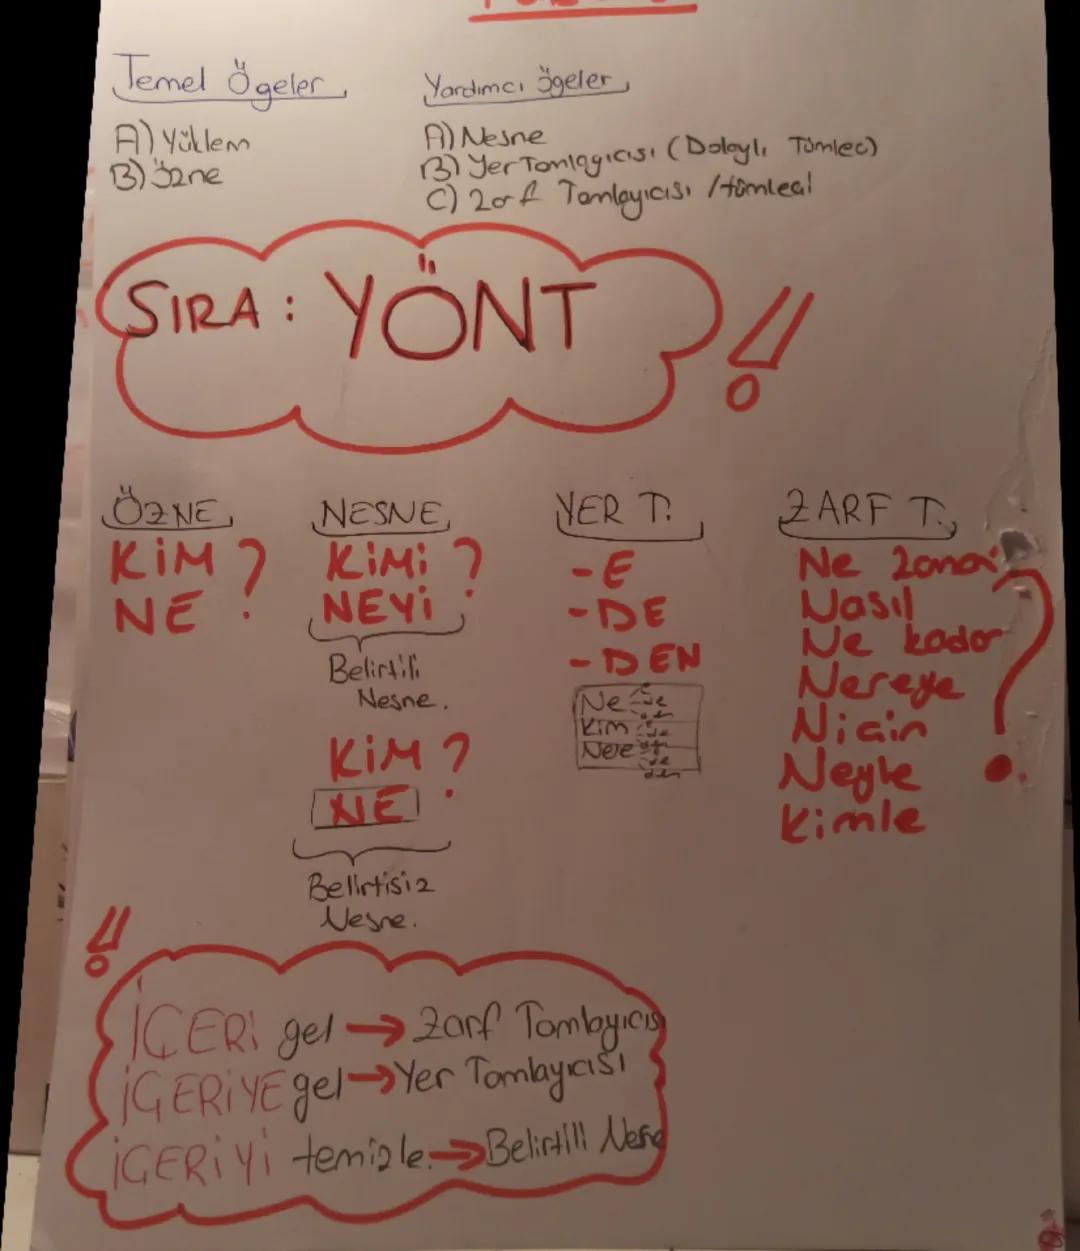 Temel Ögeler
A) Yüklem
B) Özne
Yardımcı ögeler
A) Nesne
B) Yer Tamlayıcısı (Dolaylı Tümleç)
C) Zarf Tamlayıcısı /tümleci
SIRA : YÖNT !!
ÖZNE
KİM ?
NE
NESNE
KİMİ ?
NEYİ
Belirtili
Nesne.
KİM ?
NE
Belirtisiz
Nesne.
YER T.
-E
-DE
-DEN
Ne e de den
Kim e de
Nere ye de den
ZARF T.
Ne zaman
Nasıl
Ne kadar
Nereye
Niçin
Neyle
Kimle
?
!!
İÇERİ gel → Zarf Tamlayıcısı
İÇERİYE gel → Yer Tamlayıcısı
İÇERİYİ temizle. → Belirtili Nesne